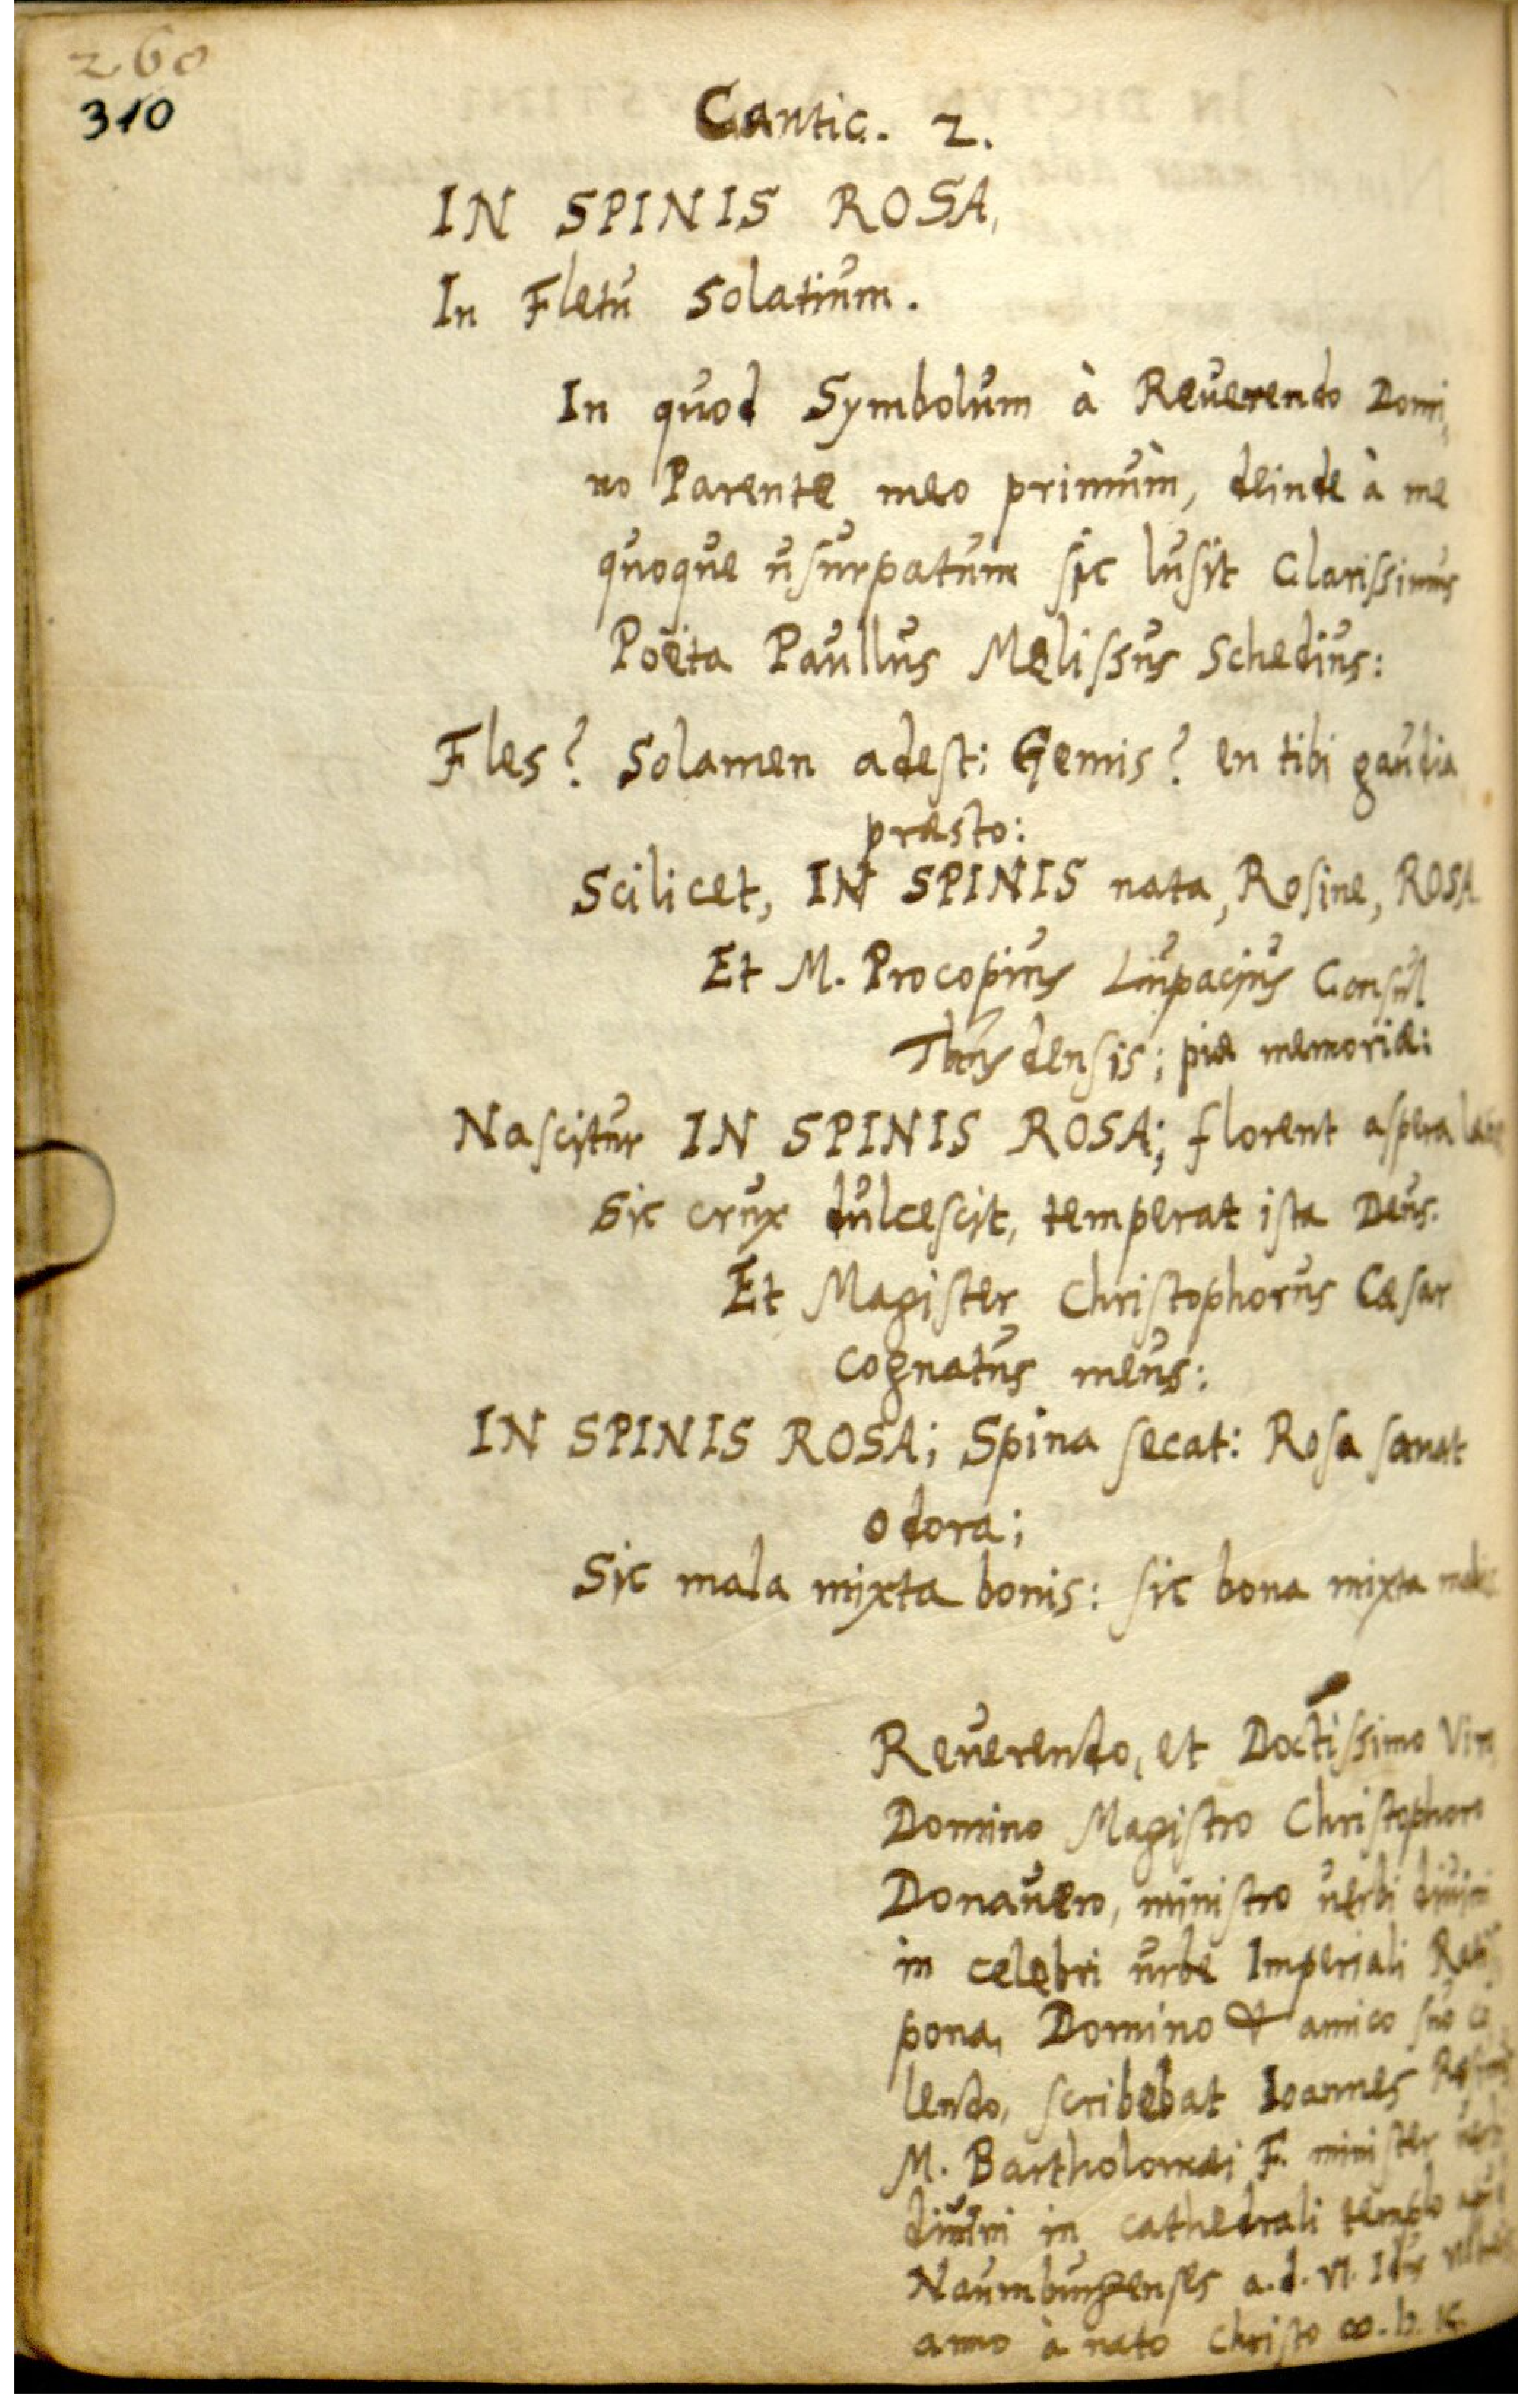 260
310
Cantic. 2.
IN SPINIS ROSA,
In Fletu Solatium.
In quod Symbolum à Reuerendo Domi,
no Parente meo primùm, deinde à me
quoque usurpatum sic lusit Clarissimus
Poëta Paullus Melissus Schedius:
Fles? Solamen adest: Gemis? en tibi gaudia
præsto:
Scilicet, IN SPINIS nata, Rosine, ROSA
Et M. Procopius Lupacius Consul
densis; piæ memoriæ:
Nascitur IN SPINIS ROSA; florent aspera
Sic crux dulcescit, temperat ista Deus.
Et Magister Christophorus Cæsar
cognatus meus:
IN SPINIS ROSA; Spina secat: Rosa sanat
odora;
Sic mala mixta bonis: sic bona mixta malis
Reuerendo, et Doctissimo Viro
Domino Magistro Christophoro
Donauero, ministro uerbi diuini
in celebri urbe Imperiali Ratis
pona, Domino & amico suo co
lendo, scribebat Ioannes Rosinus
M. Bartholomæi F. minister uerbi
diuini in cathedrali templo apud
Naumburgenses a. d. VI. Idus
anno à nato Christo